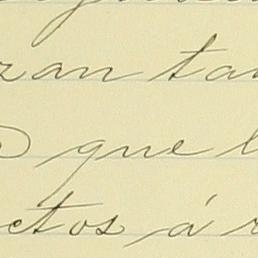 zan ta
que l
ctos á r